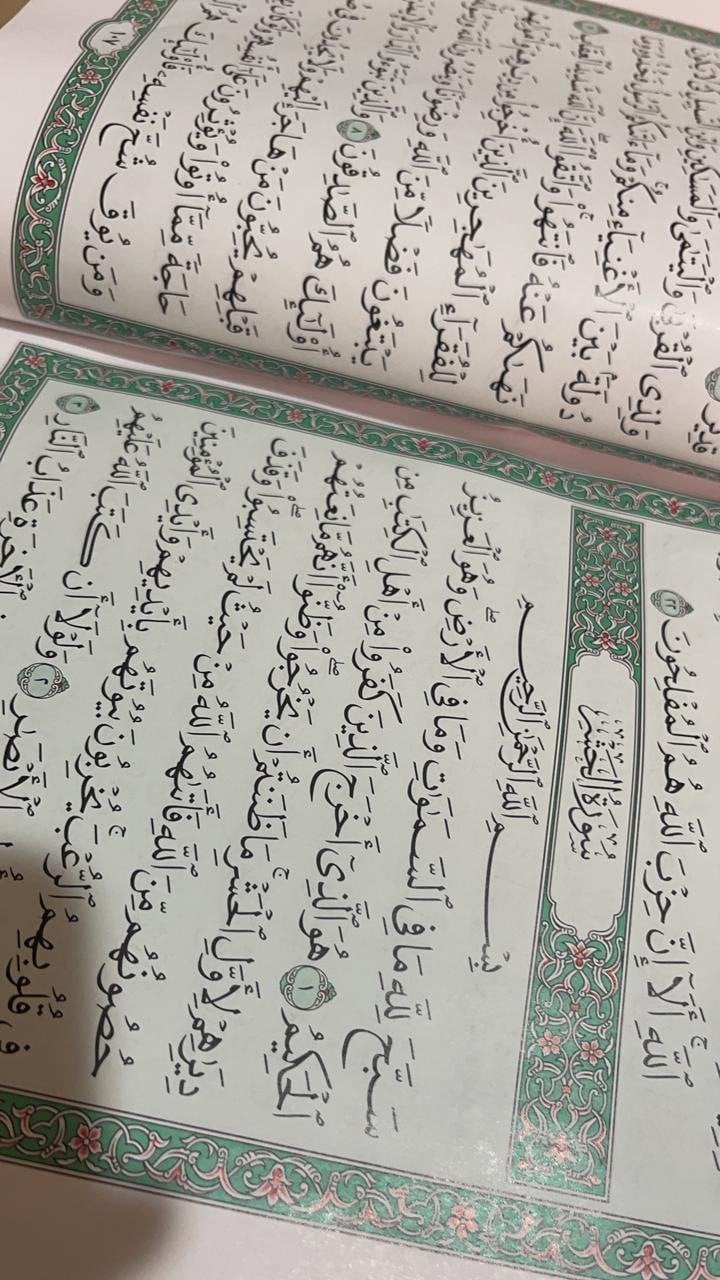 ٱللَّهِ أَلَآ إِنَّ حِزْبَ ٱللَّهِ هُمُ ٱلْمُفْلِحُونَ ٢٢
سُورَةُ الحَشْرِ
بِسْمِ ٱللَّهِ ٱلرَّحْمَٰنِ ٱلرَّحِيمِ
سَبَّحَ لِلَّهِ مَا فِى ٱلسَّمَٰوَٰتِ وَمَا فِى ٱلْأَرْضِ ۖ وَهُوَ ٱلْعَزِيزُ
ٱلْحَكِيمُ ١ هُوَ ٱلَّذِىٓ أَخْرَجَ ٱلَّذِينَ كَفَرُوا۟ مِنْ أَهْلِ ٱلْكِتَٰبِ مِن
دِيَٰرِهِمْ لِأَوَّلِ ٱلْحَشْرِ ۚ مَا ظَنَنتُمْ أَن يَخْرُجُوا۟ ۖ وَظَنُّوٓا۟ أَنَّهُم مَّانِعَتُهُمْ
حُصُونُهُم مِّنَ ٱللَّهِ فَأَتَىٰهُمُ ٱللَّهُ مِنْ حَيْثُ لَمْ يَحْتَسِبُوا۟ ۖ وَقَذَفَ
فِى قُلُوبِهِمُ ٱلرُّعْبَ ۚ يُخْرِبُونَ بُيُوتَهُم بِأَيْدِيهِمْ وَأَيْدِى ٱلْمُؤْمِنِينَ
ٱلْأَبْصَٰرِ ٢ وَلَوْلَآ أَن كَتَبَ ٱللَّهُ عَلَيْهِمُ
ٱلْءَاخِرَةِ عَذَابُ ٱلنَّارِ ٣
وَلِذِى ٱلْقُرْبَىٰ وَٱلْيَتَٰمَىٰ وَٱلْمَسَٰكِينِ وَٱبْنِ ٱلسَّبِيلِ كَىْ لَا يَكُونَ
دُولَةًۢ بَيْنَ ٱلْأَغْنِيَآءِ مِنكُمْ ۚ وَمَآ ءَاتَىٰكُمُ ٱلرَّسُولُ فَخُذُوهُ
نَهَىٰكُمْ عَنْهُ فَٱنتَهُوا۟ ۚ وَٱتَّقُوا۟ ٱللَّهَ ۖ إِنَّ ٱللَّهَ شَدِيدُ ٱلْعِقَابِ ٧
لِلْفُقَرَآءِ ٱلْمُهَٰجِرِينَ ٱلَّذِينَ أُخْرِجُوا۟ مِن دِيَٰرِهِمْ وَأَمْوَٰلِهِمْ
يَبْتَغُونَ فَضْلًا مِّنَ ٱللَّهِ وَرِضْوَٰنًا وَيَنصُرُونَ ٱللَّهَ
أُو۟لَٰٓئِكَ هُمُ ٱلصَّٰدِقُونَ ٨ وَٱلَّذِينَ تَبَوَّءُو ٱلدَّارَ وَٱلْإِيمَٰنَ
قَبْلِهِمْ يُحِبُّونَ مَنْ هَاجَرَ إِلَيْهِمْ وَلَا يَجِدُونَ فِى
حَاجَةً مِّمَّآ أُوتُوا۟ وَيُؤْثِرُونَ عَلَىٰٓ أَنفُسِهِمْ وَلَوْ كَانَ
وَمَن يُوقَ شُحَّ نَفْسِهِۦ فَأُو۟لَٰٓئِكَ